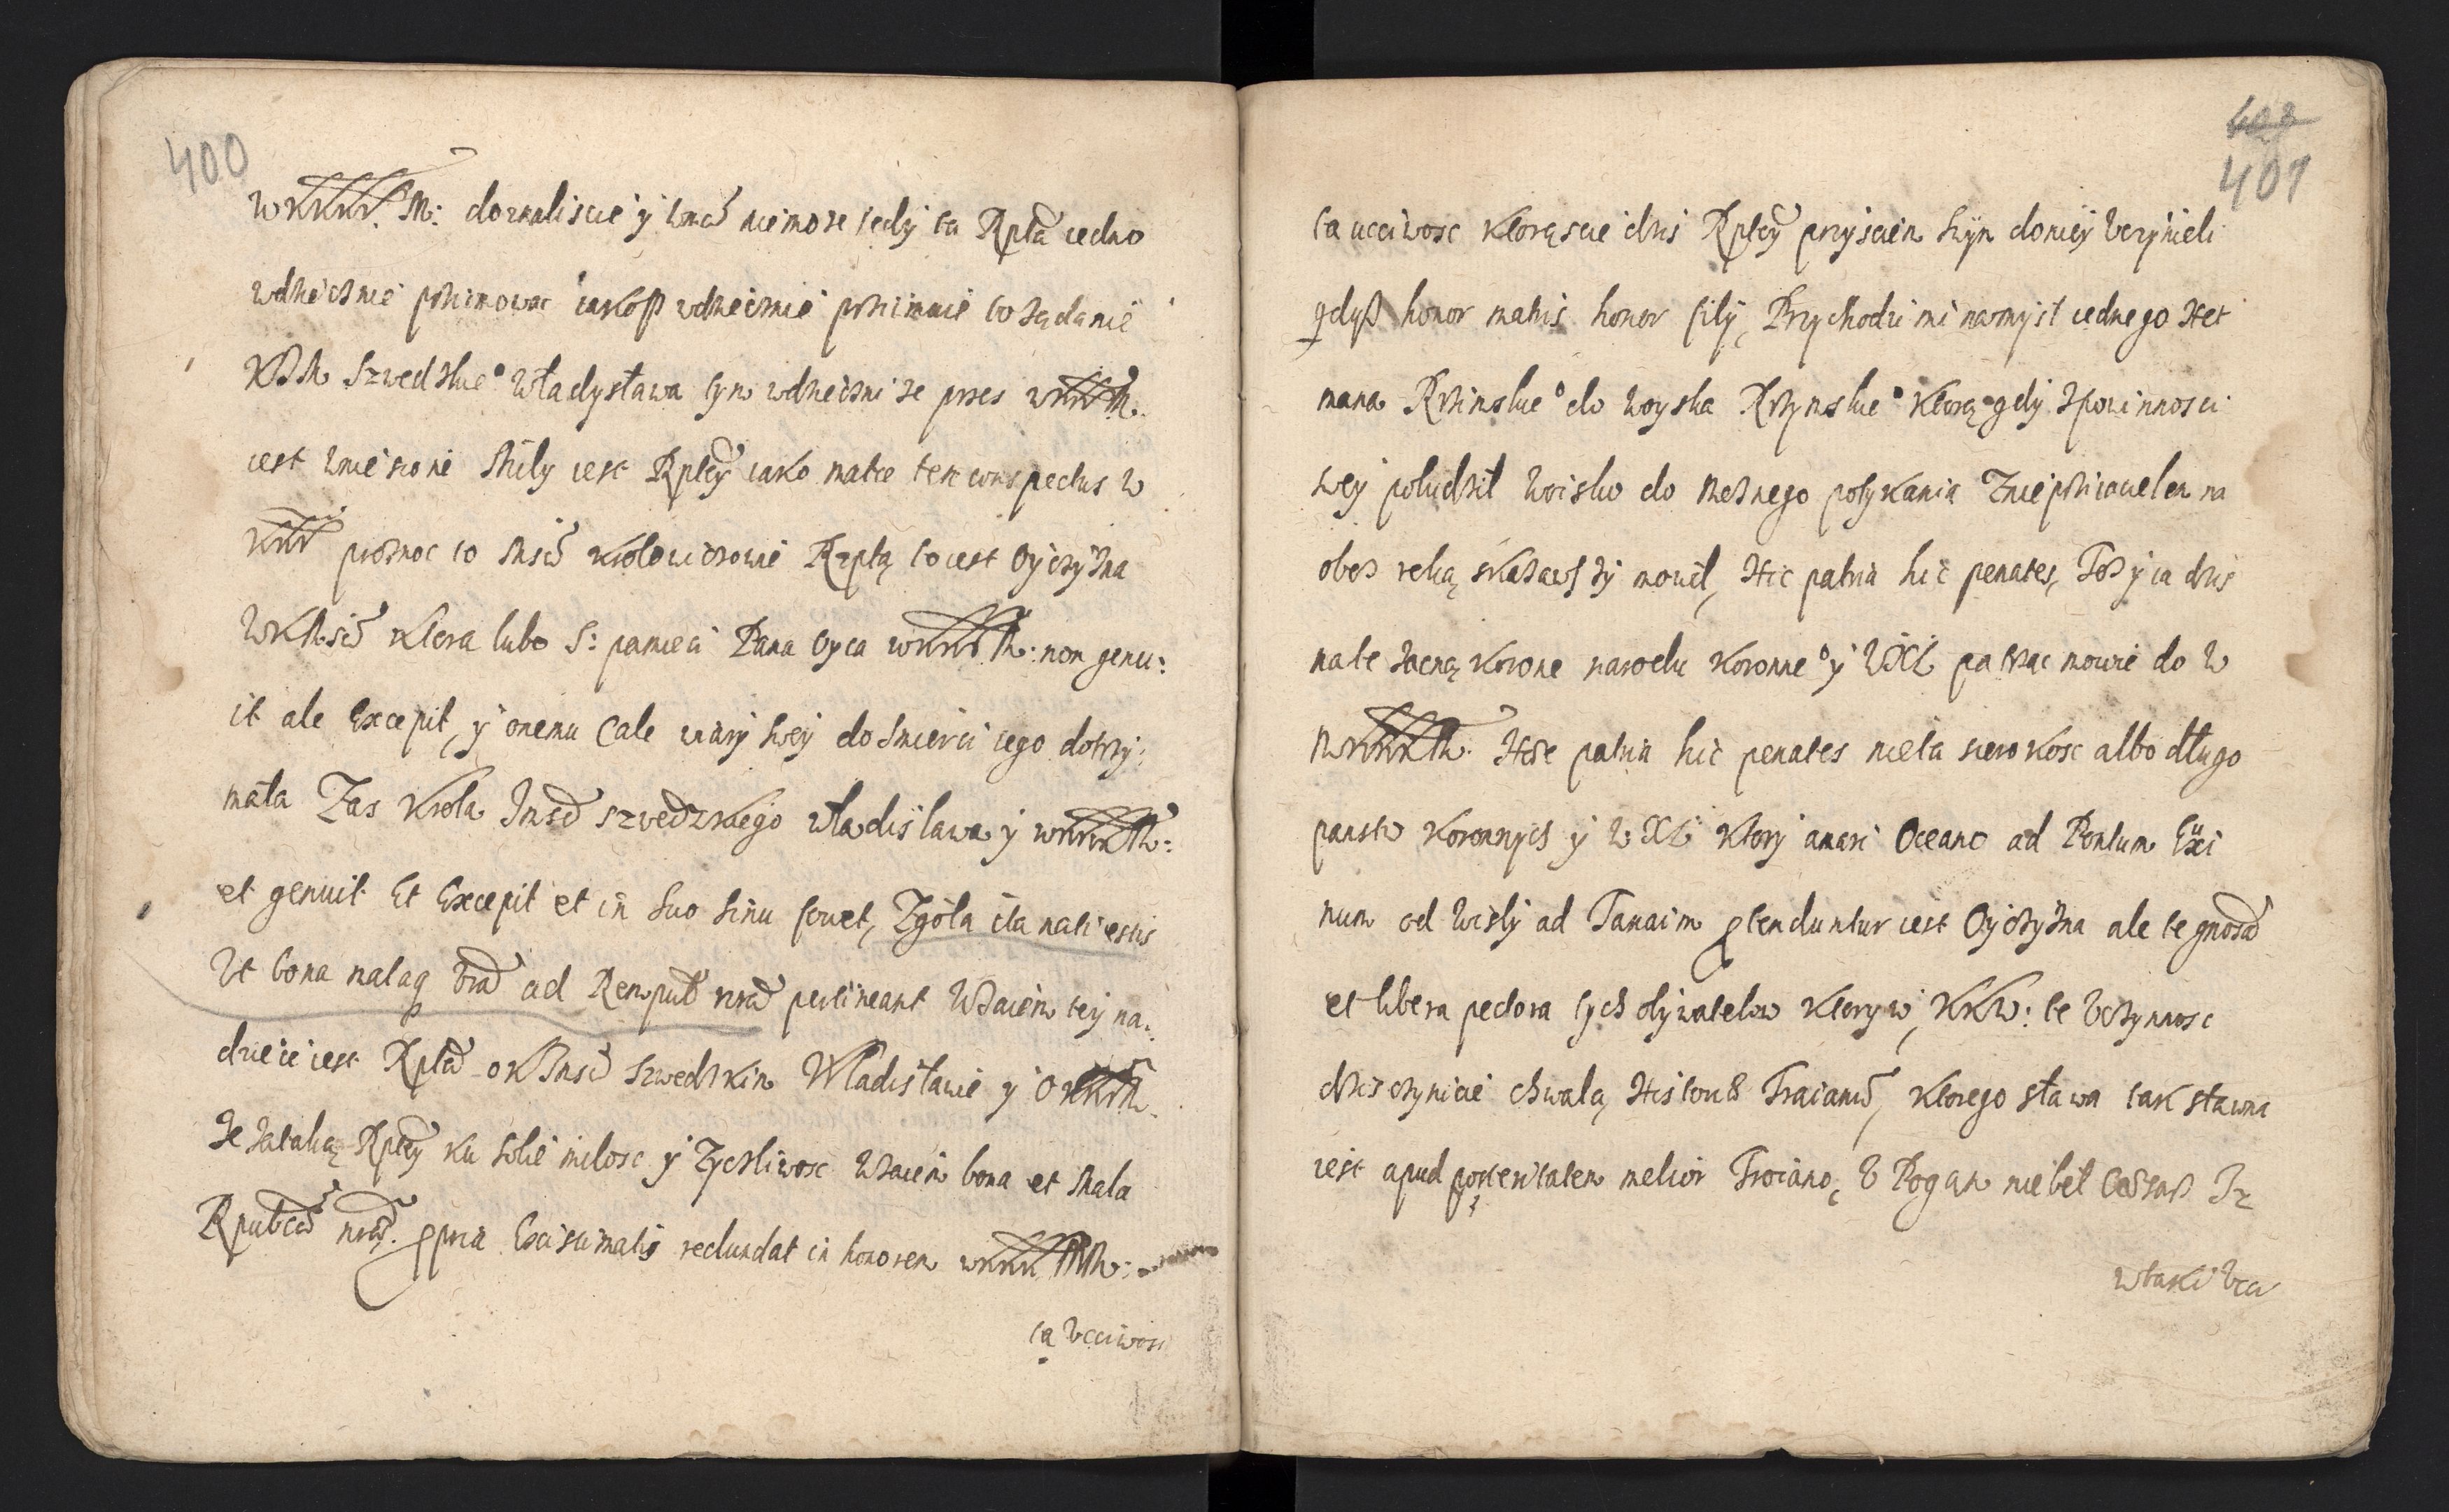 400
WKKKK. M: doznaliscie y temu niemoze tedy ta Rptā iedno
wdzięcznie przimowac iakoß wdziecznie przimuie to żądanie
KJM Szwedzkie° Władysława tym wdzięczni ze przes WKKM.
iest wniesione Miły iest Rptey iako matce ten conspectus w
KKK proznoc to Msci Krolewiczowie Rzptą to iest Oyczyzna
WKMsci ktora lubo S: pamieci Pana Oyca WKKK M: non genu:
it ale Excepit, y onemu Cale wiary swey do smierci iego dotrzy:
mała Zas Krola Jmsci szwedzkiego Władisława y WKKKM:
et genuit Et Excepit et in suo sinu fouet, Zgoła ita nati estis
Vt bona malaq vra ad Rempub nrā pertineant Wzaiem tey na:
dzieie iest Rptā o KJmsci Szwedzkim Władisławie y O KKKM.
Ze za taką Rptey ku sobie milosc y Zyczliwosc Wzaiem bona et Mala
Rpubcæ nræ. ppria Existimatis redundat in honorem WKKK MM:
ta Vcciwosc
401
ta ucciwosc ktorąscie dzis Rptey przysciem swym do niey Vczynieli
gdyß honor matris honor filij, Przychodzi mi namysl iednego Het
mana Rzimskie° do woyska Rzymskie° ktorą gdy z powinnosci
swey pobudził woisko do meznego potykania Z nieprziacielem na
oboz ręką skazawszy mowił, Hic patria hic penates, Toż y ia dzis
na te zacną korone narodu Koronne° y WXL patrząc mowie do W
WKKKM. Hic patria hic penates nie ta szerokosc albo długo
panstw Koronnych y W. XL ktory a mari Oceano ad Pontum Euxi
num od Wisly ad Tanaim ptenduntur iest Oyczyzna ale te
et libera pectora tych obywatelow ktory w, KKW: te Vczynnosc
dzis czynicie chwalą Trajanū, ktorego sława tak sławna
iest apud posteritatem melior Troiano, V Pogan nie beł Iz
wtaki Vcz